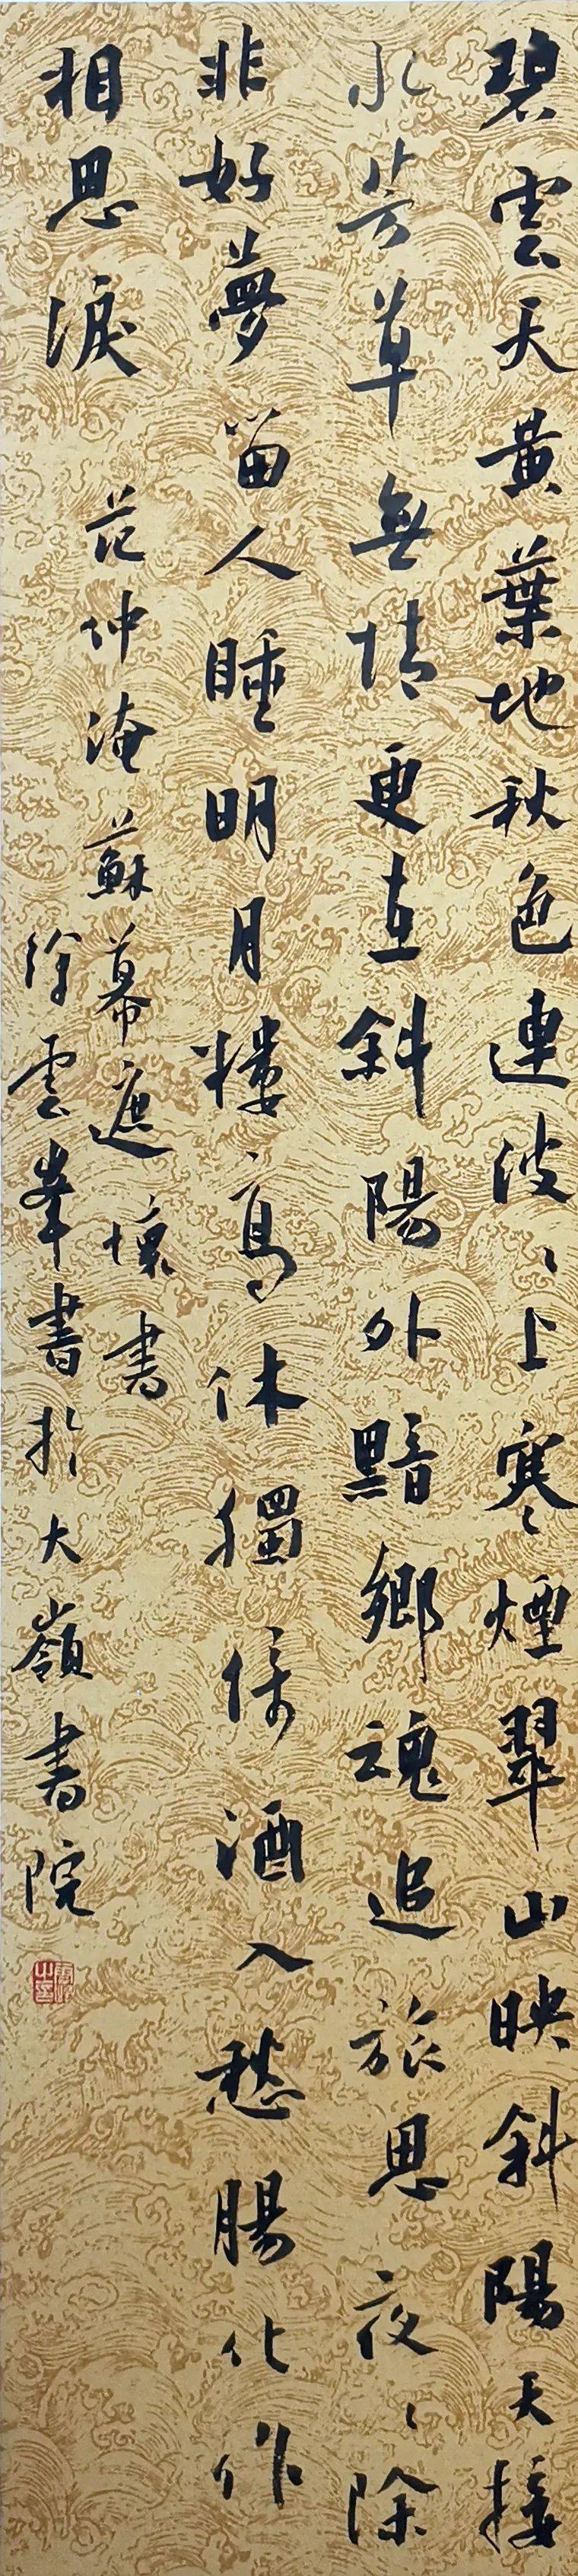 碧雲天黃葉地秋色連波、上寒煙翠山映斜陽天接
水芳草無情更在斜陽外黯鄉魂追旅思夜、除
非好夢留人睡明月樓高休獨倚酒入愁腸化作
相思淚
范仲淹蘇幕遮懷書
徐雲峯書於大嶺書院